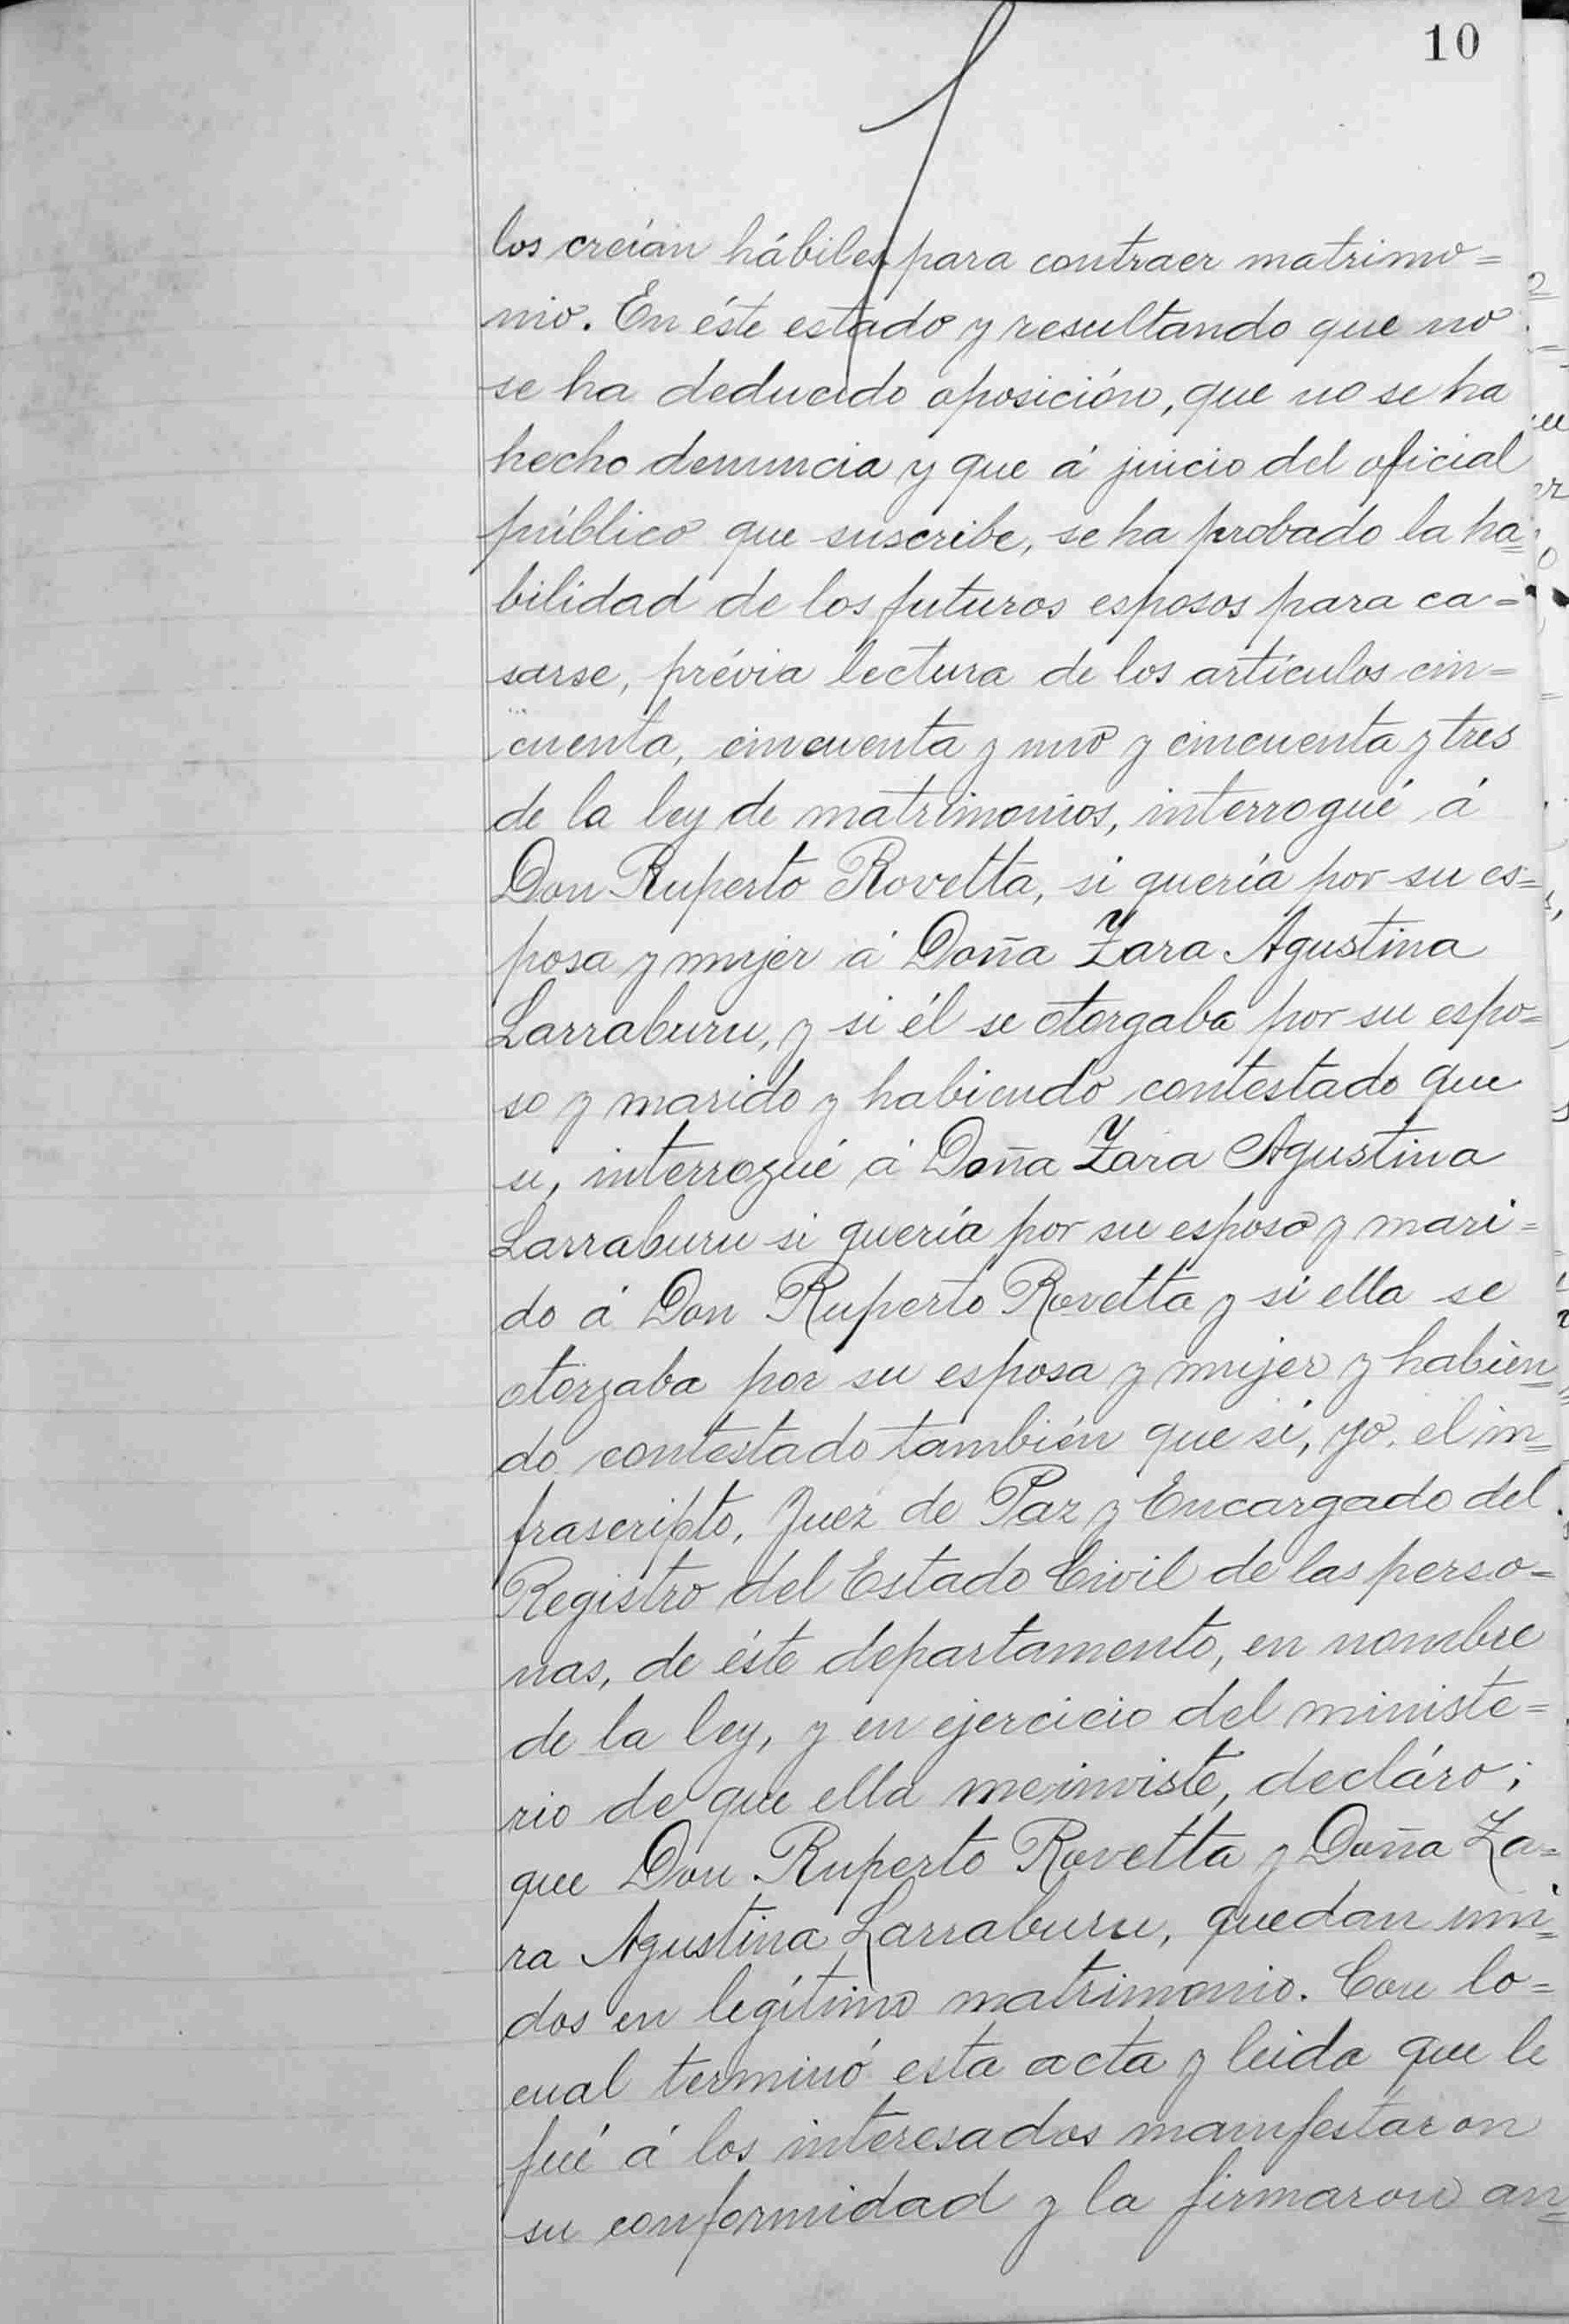 10
los creían hábiles para contraer matrimo=
nio. En éste estado y resultando que no
se ha deducido oposición, que no se ha
hecho denuncia y que á juicio del oficial
público que suscribe, se ha probado la ha=
bilidad de los futuros esposos para ca=
sarse, prévia lectura de los artículos cin=
cuenta, cincuenta y uno y cincuenta y tres
de la ley de matrimonios, interrogué á
Don Ruperto Rovetta, si quería por su es=
posa y mujer á Doña Zara Agustina
Larraburu, y si él se otorgaba por su espo=
so y marido y habiendo contestado que
si, interrogué á Doña Zara Agustina
Larraburu si quería por su esposo y mari=
do á Don Ruperto Rovetta y si ella se
otorgaba por su esposa y mujer y habien=
do contestado también que si, yo, el in=
frascripto, Juez de Paz y Encargado del
Registro del Estado Civil de las perso=
nas, de éste departamento, en nombre
de la ley, y en ejercicio del ministe=
rio de que ella me inviste, decláro;
que Don Ruperto Rovetta y Doña Za=
ra Agustina Larraburu, quedan uni=
dos en legítimo matrimonio. Con lo=
cual terminó esta acta y leida que le
fué á los interesados manifestaron
su conformidad y la firmaron an=